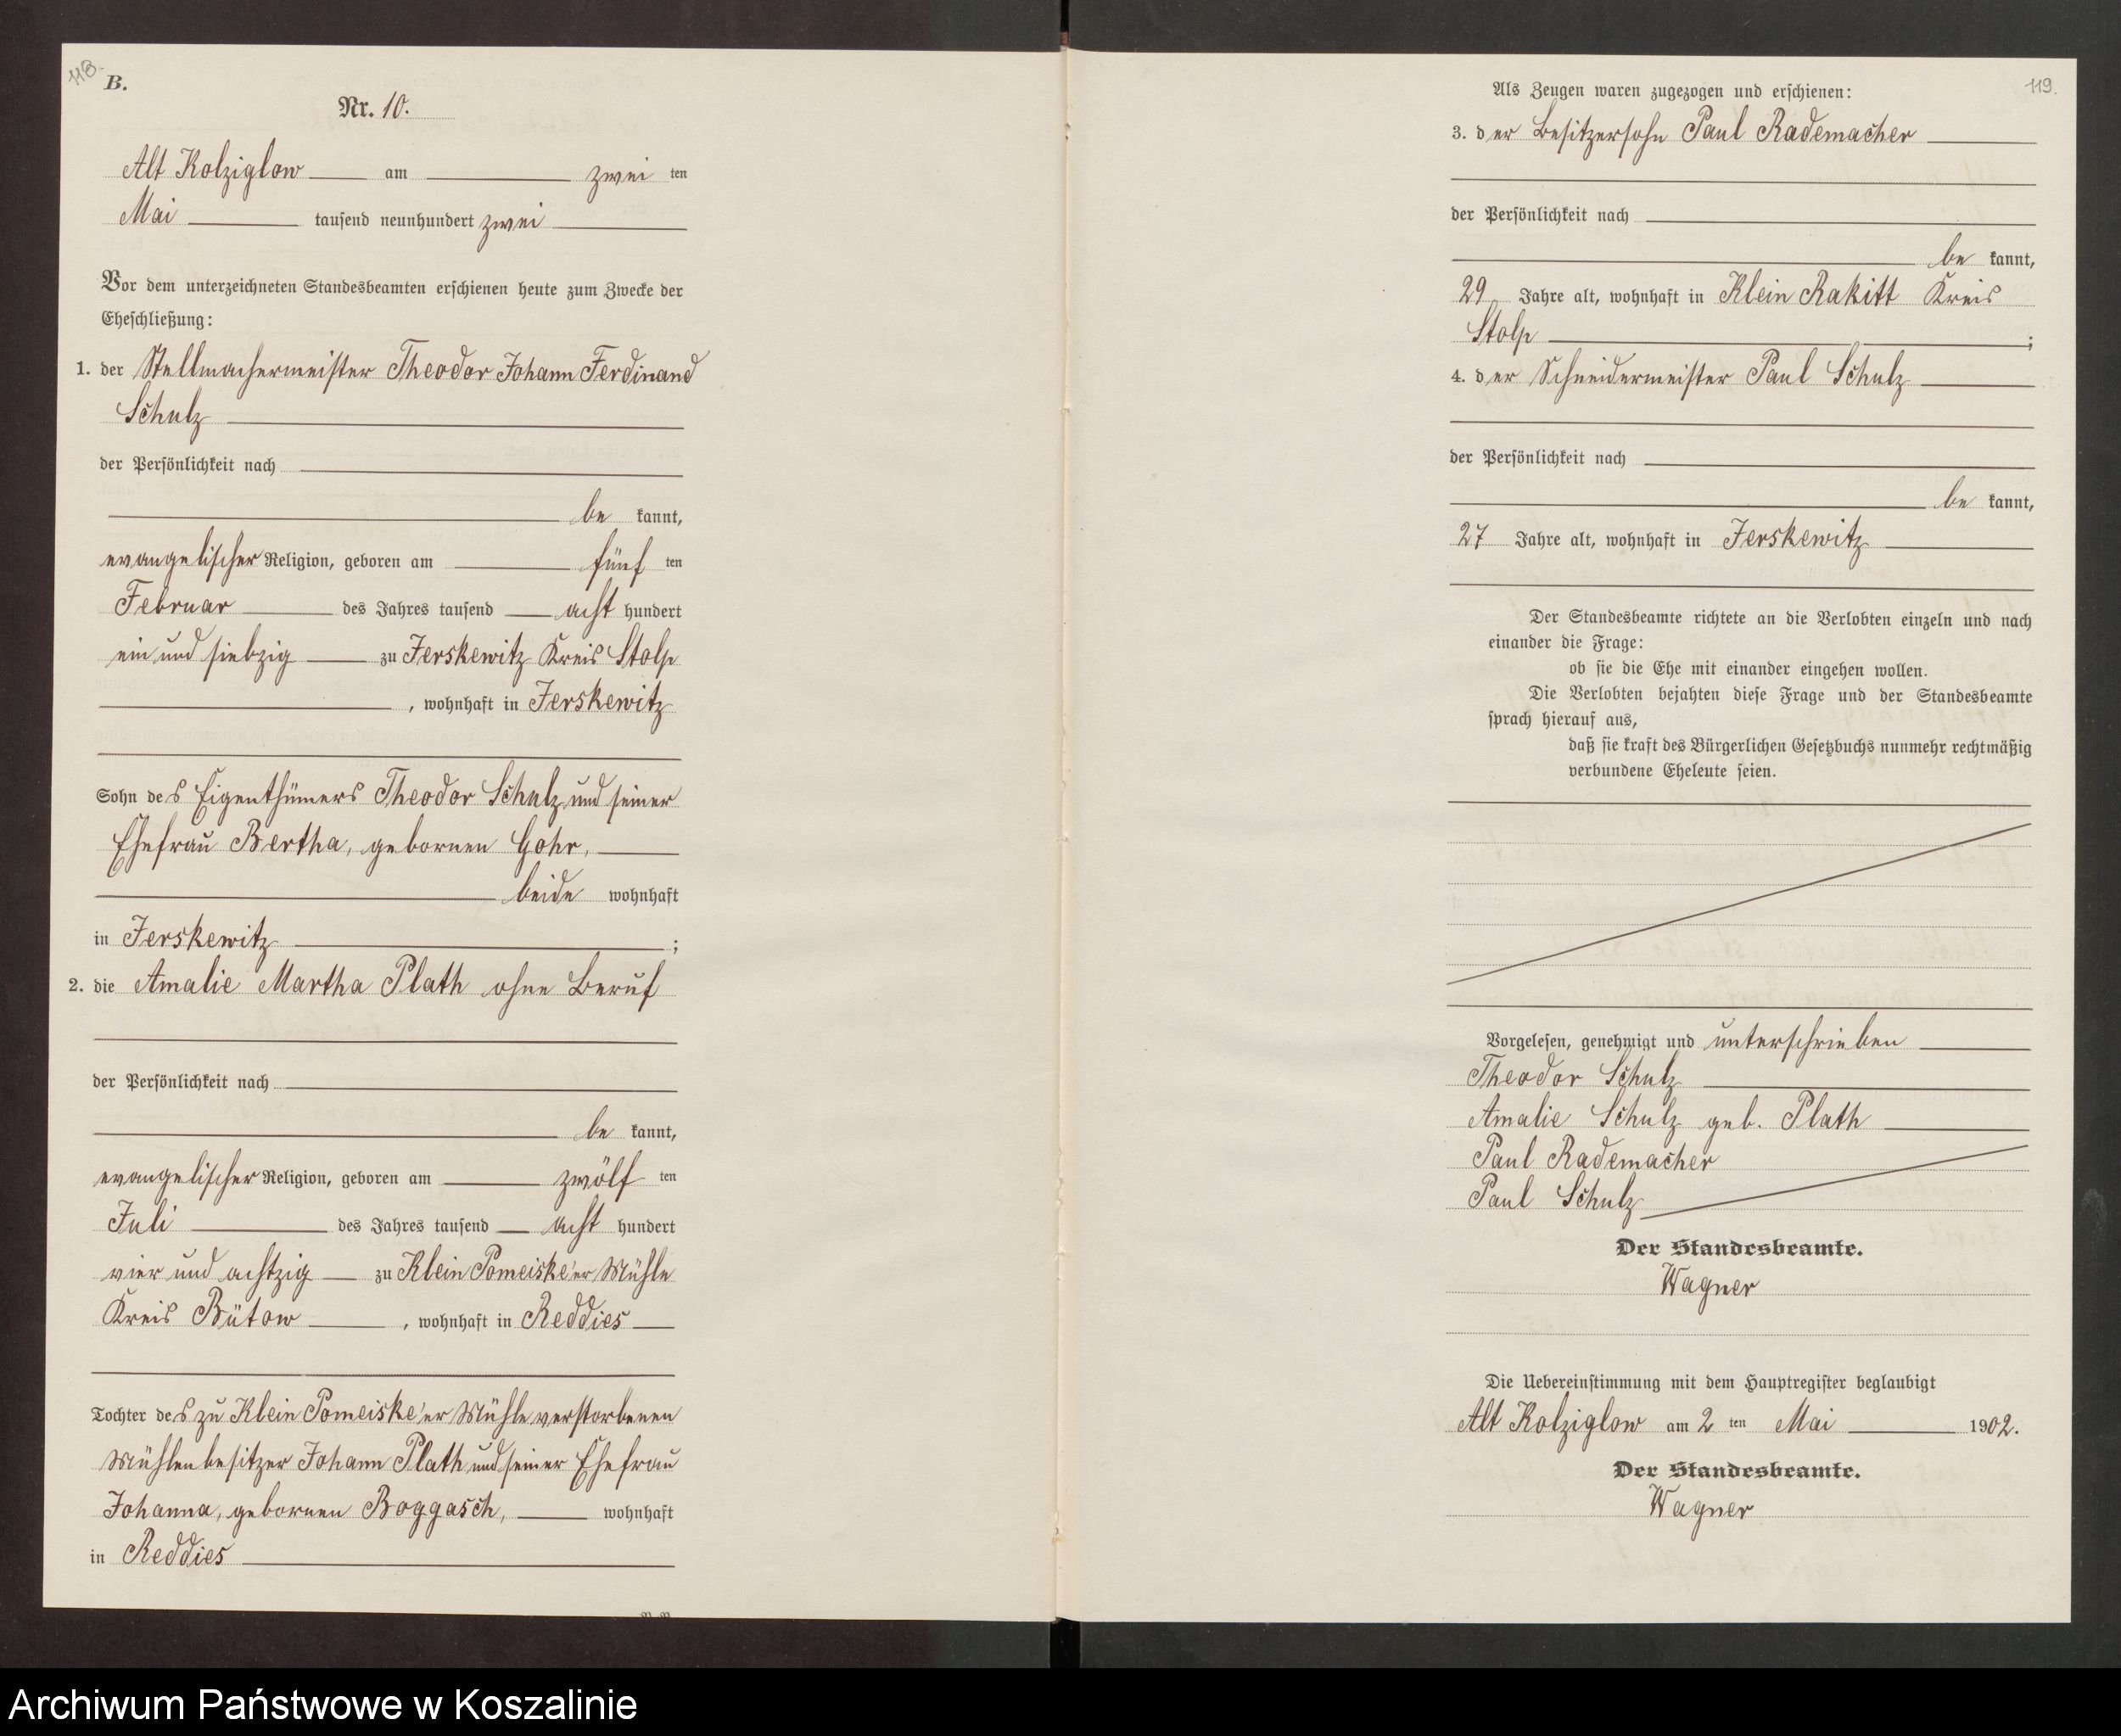 118.
B.
Nr. 10.
Alt Kolziglow am zwei ten
Mai tausend neunhundert zwei
Vor dem unterzeichneten Standesbeamten erschienen heute zum Zwecke der
Eheschließung:
1. der Stellmachermeister Theodor Johann Ferdinand
Schulz
der Persönlichkeit nach
be kannt,
evangelischer Religion, geboren am fünf ten
Februar des Jahres tausend acht hundert
ein und siebzig zu Jerskewitz Kreis Stolp
, wohnhaft in Jerskewitz
Sohn des Eigenthümers Theodor Schulz und seiner
Ehefrau Bertha, gebornen Gohr,
beide wohnhaft
in Jerskewitz ;
2. die Amalie Martha Plath ohne Beruf
der Persönlichkeit nach
be kannt,
evangelischer Religion, geboren am zwölf ten
Juli des Jahres tausend acht hundert
vier und achtzig zu Klein Pomeiske'er Mühle
Kreis Bütow , wohnhaft in Reddies
Tochter des zu Klein Pomeiske'er Mühle verstorbenen
Mühlenbesitzer Johann Plath und seiner Ehefrau
Johanna, gebornen Boggasch, wohnhaft
in Reddies
119.
Als Zeugen waren zugezogen und erschienen:
3. der Besitzersohn Paul Rademacher
der Persönlichkeit nach
be kannt,
29 Jahre alt, wohnhaft in Klein Rakitt Kreis
Stolp ;
4. der Schneidermeister Paul Schulz
der Persönlichkeit nach
be kannt,
27 Jahre alt, wohnhaft in Jerskewitz
Der Standesbeamte richtete an die Verlobten einzeln und nach
einander die Frage:
ob sie die Ehe mit einander eingehen wollen.
Die Verlobten bejahten diese Frage und der Standesbeamte
sprach hierauf aus,
daß sie kraft des Bürgerlichen Gesetzbuchs nunmehr rechtmäßig
verbundene Eheleute seien.
Vorgelesen, genehmigt und unterschrieben
Theodor Schulz
Amalie Schulz geb. Plath
Paul Rademacher
Paul Schulz
Der Standesbeamte.
Wagner
Die Uebereinstimmung mit dem Hauptregister beglaubigt
Alt Kolziglow am 2 ten Mai 1902.
Der Standesbeamte.
Wagner
Archiwum Państwowe w Koszalinie